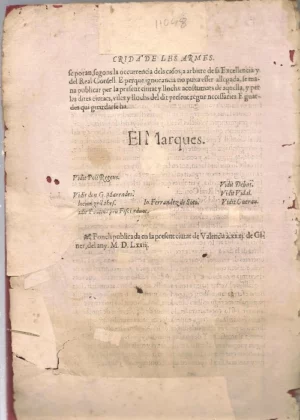 CRIDA DE LES ARMES.
se poran, segons la occurrencia dels casos, a arbitre de sa Excellencia y
del Real Consell. E perque ignorancia no puixa esser allegada, se mana
publicar per la present ciutat y llochs acostumats de aquella, y per
les dites ciutats, viles y llochs del dit present regne necessaries. E guarde
dos qui guardar se ha.
El Marques.
Vidit Poli Regens.
Vidit don G.
In Ferrandez de Soto.
Vidit
Vidit Vidal.
Vidit
Fonch publicada en la present ciutat de Valencia a xxxj. de
ner, del any M. D. Lxxij.